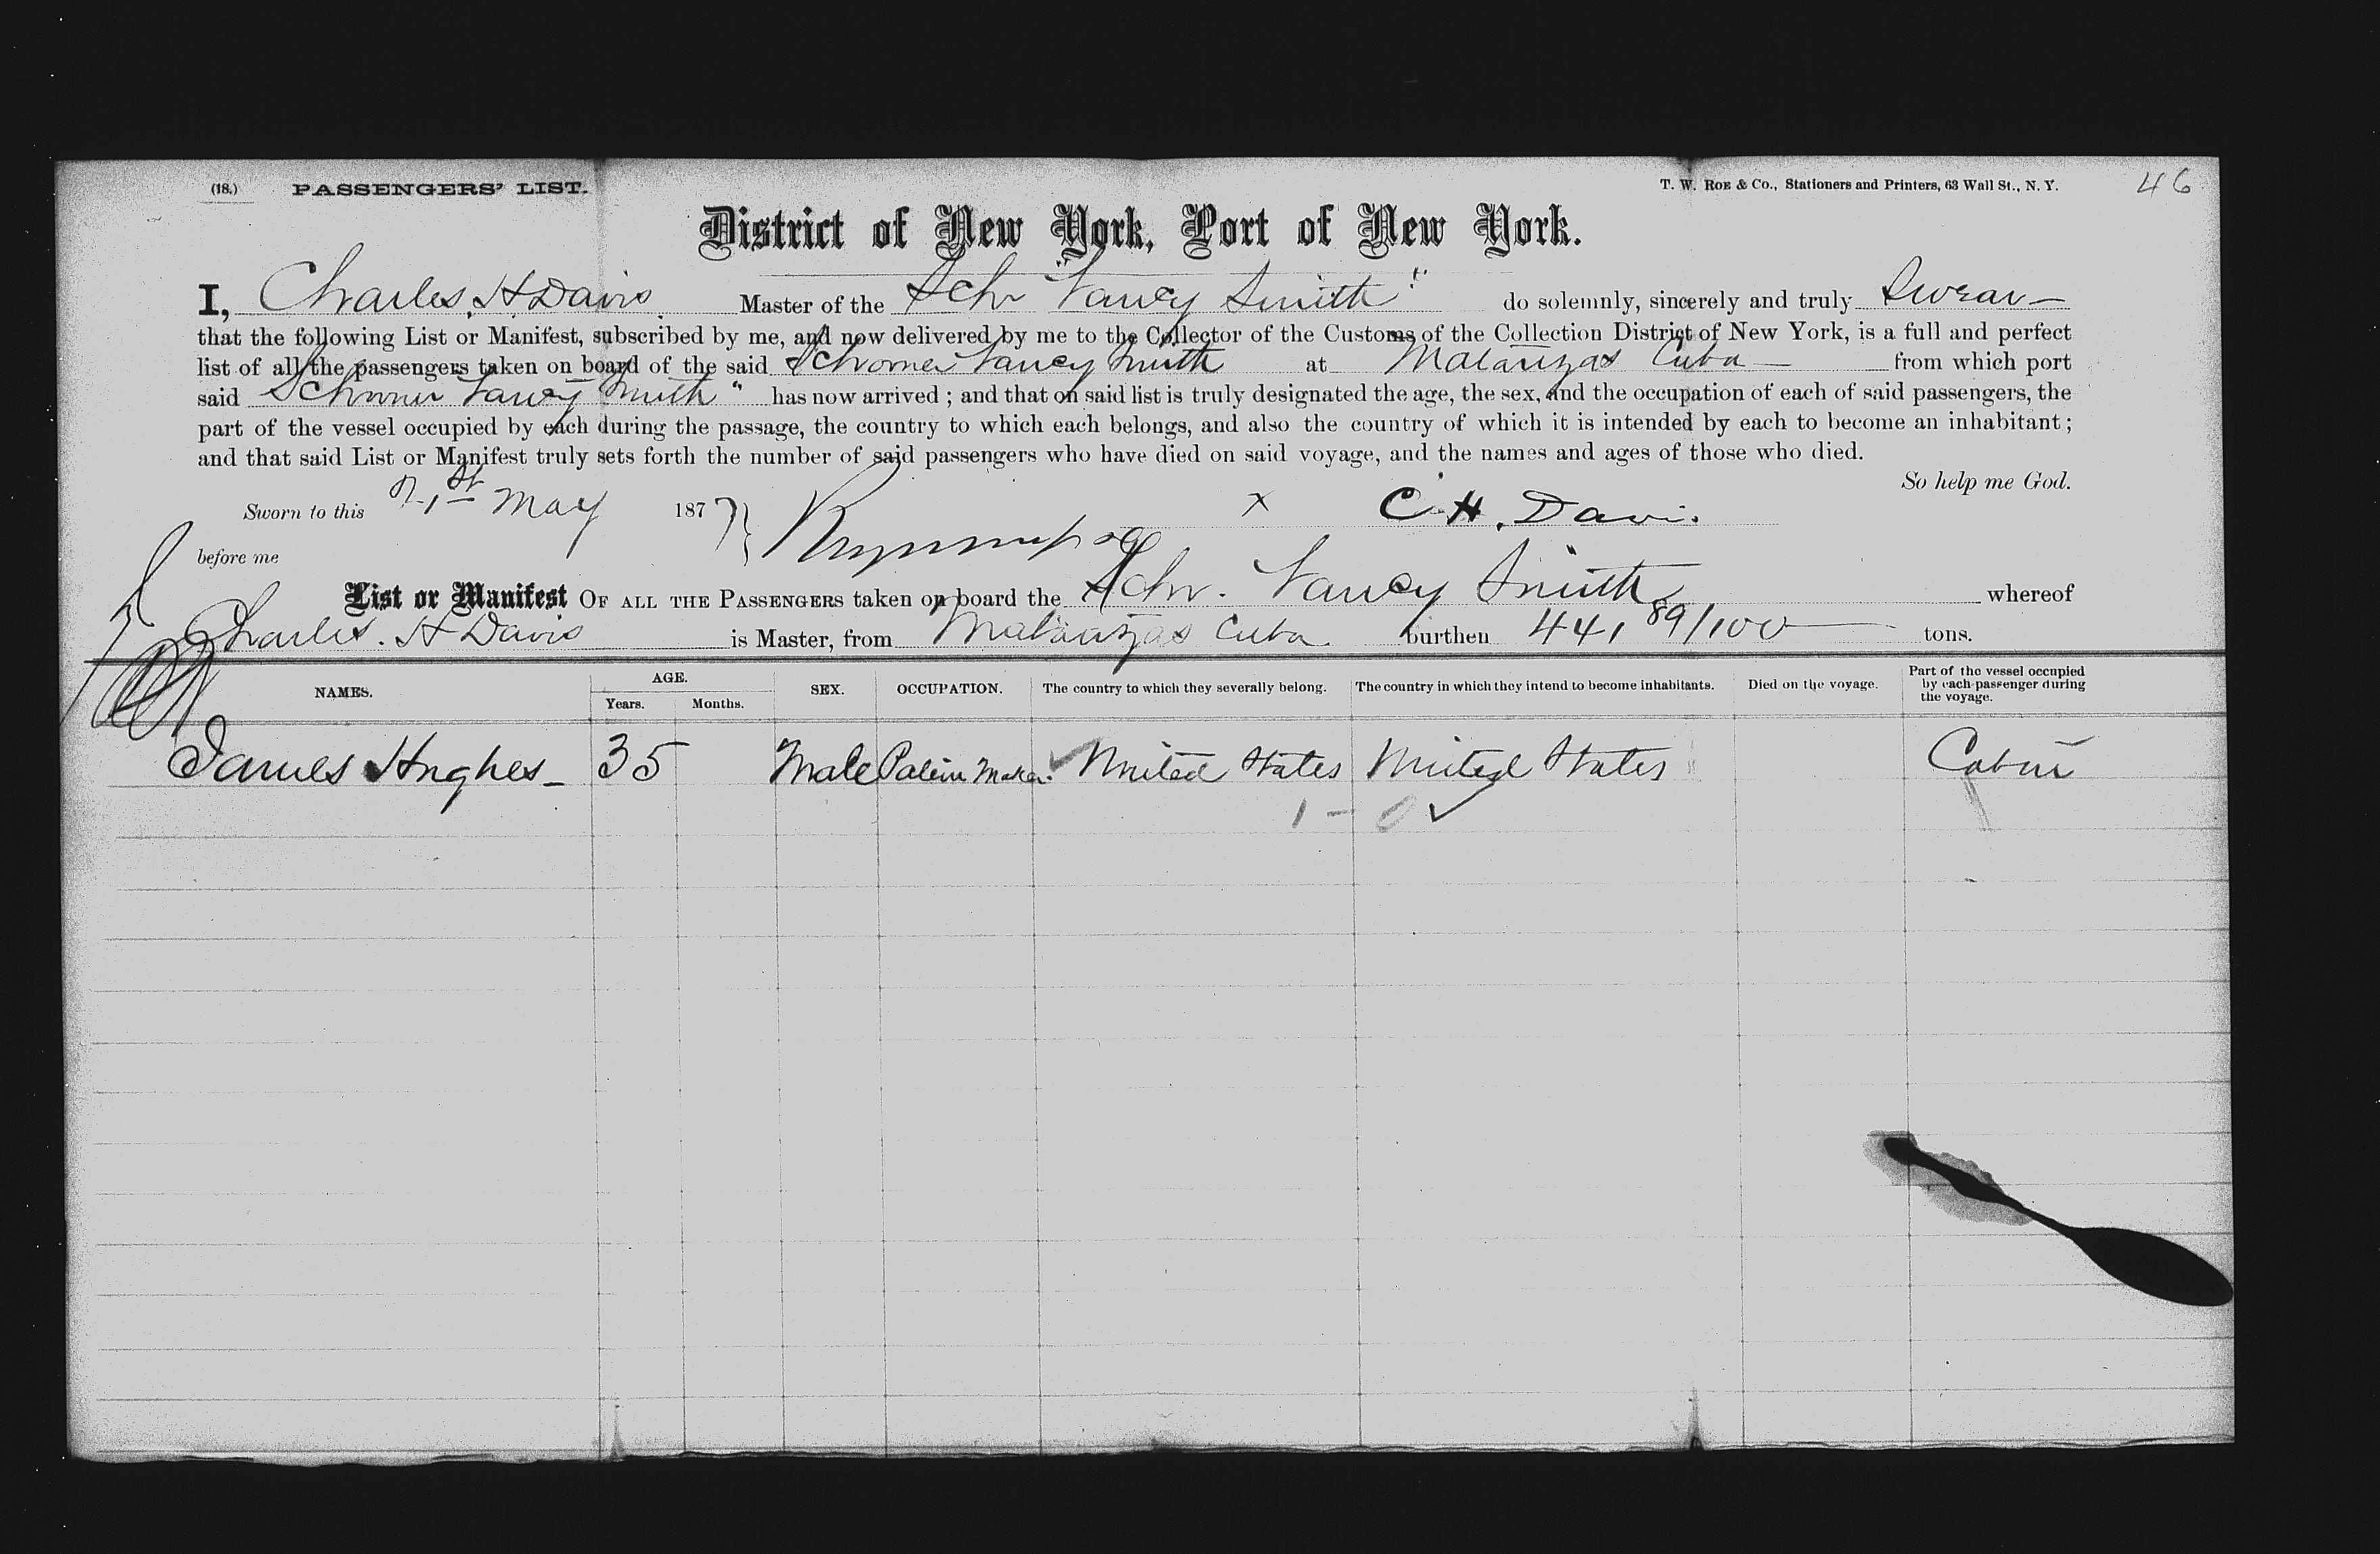 (18.) PASSENGERS' LIST. T. W. ROE & Co., Stationers and Printers, 63 Wall St., N. Y. 46
District of New York, Port of New York.
I, Charles. H Davis Master of the Schr "Nancy Smith" do solemnly, sincerely and truly Swear —
that the following List or Manifest, subscribed by me, and now delivered by me to the Collector of the Customs of the Collection District of New York, is a full and perfect
list of all the passengers taken on board of the said Schooner Nancy Smith at Matanzas Cuba — from which port
said Schooner Nancy Smith" has now arrived ; and that on said list is truly designated the age, the sex, and the occupation of each of said passengers, the
part of the vessel occupied by each during the passage, the country to which each belongs, and also the country of which it is intended by each to become an inhabitant ;
and that said List or Manifest truly sets forth the number of said passengers who have died on said voyage, and the names and ages of those who died.
So help me God.
Sworn to this May 1877 x C. H. Davis
before me
List or Manifest OF ALL THE PASSENGERS taken on board the Schr. Nancy Smith whereof
Charles. H Davis is Master, from Matanzas Cuba burthen 441 89/100 tons.
NAMES. AGE. Years. Months. SEX. OCCUPATION. The country to which they severally belong. The country in which they intend to become inhabitants. Died on the voyage. Part of the vessel occupied by each passenger during the voyage.
James Hughes — 35 Male Maker United States United States Cabin
1 - 0 ✓